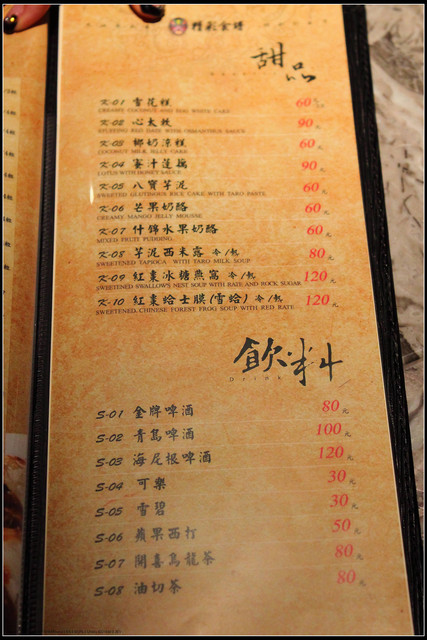 精彩食譜
甜品
K-01 雪花糕 60元
CREAMY COCONUT AND EGG WHITE CAKE
K-02 心太軟 90元
STUFFING RED DATE WITH OSMANTHUS SAUCE
K-03 椰奶涼糕 60元
COCONUT MILK JELLY CAKE
K-04 蜜汁蓮藕 90元
LOTUS WITH HONEY SAUCE
K-05 八寶芋泥 60元
SWEETED GLUTINOUS RICE CAKE WITH TARO PASTE
K-06 芒果奶酪 60元
CREAMY MANGO JELLY MOUSSE
K-07 什錦水果奶酪 60元
MIXED FRUIT PUDDING
K-08 芋泥西米露 冷/熱 80元
SWEETENED TAPIOCA WITH TARO MILK SOUP
K-09 紅棗冰糖燕窩 冷/熱 120元
SWEETENED SWALLOW'S NEST SOUP WITH RATE AND ROCK SUGAR
K-10 紅棗蛤士膜(雪蛤) 冷/熱 120元
SWEETENED, CHINESE FOREST FROG SOUP WITH RED RATE
飲料
Drink
S-01 金牌啤酒 80元
S-02 青島啤酒 100元
S-03 海尼根啤酒 120元
S-04 可樂 30元
S-05 雪碧 30元
S-06 蘋果西打 50元
S-07 開喜烏龍茶 80元
S-08 油切茶 80元